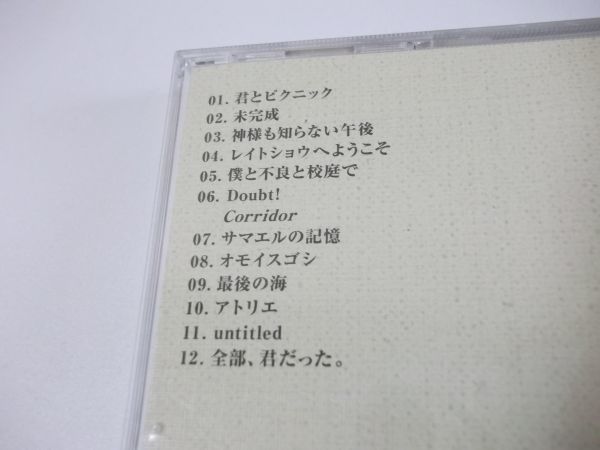 01. 君とピクニック
02. 未完成
03. 神様も知らない午後
04. レイトショウへようこそ
05. 僕と不良と校庭で
06. Doubt!
Corridor
07. サマエルの記憶
08. オモイスゴシ
09. 最後の海
10. アトリエ
11. untitled
12. 全部、君だった。